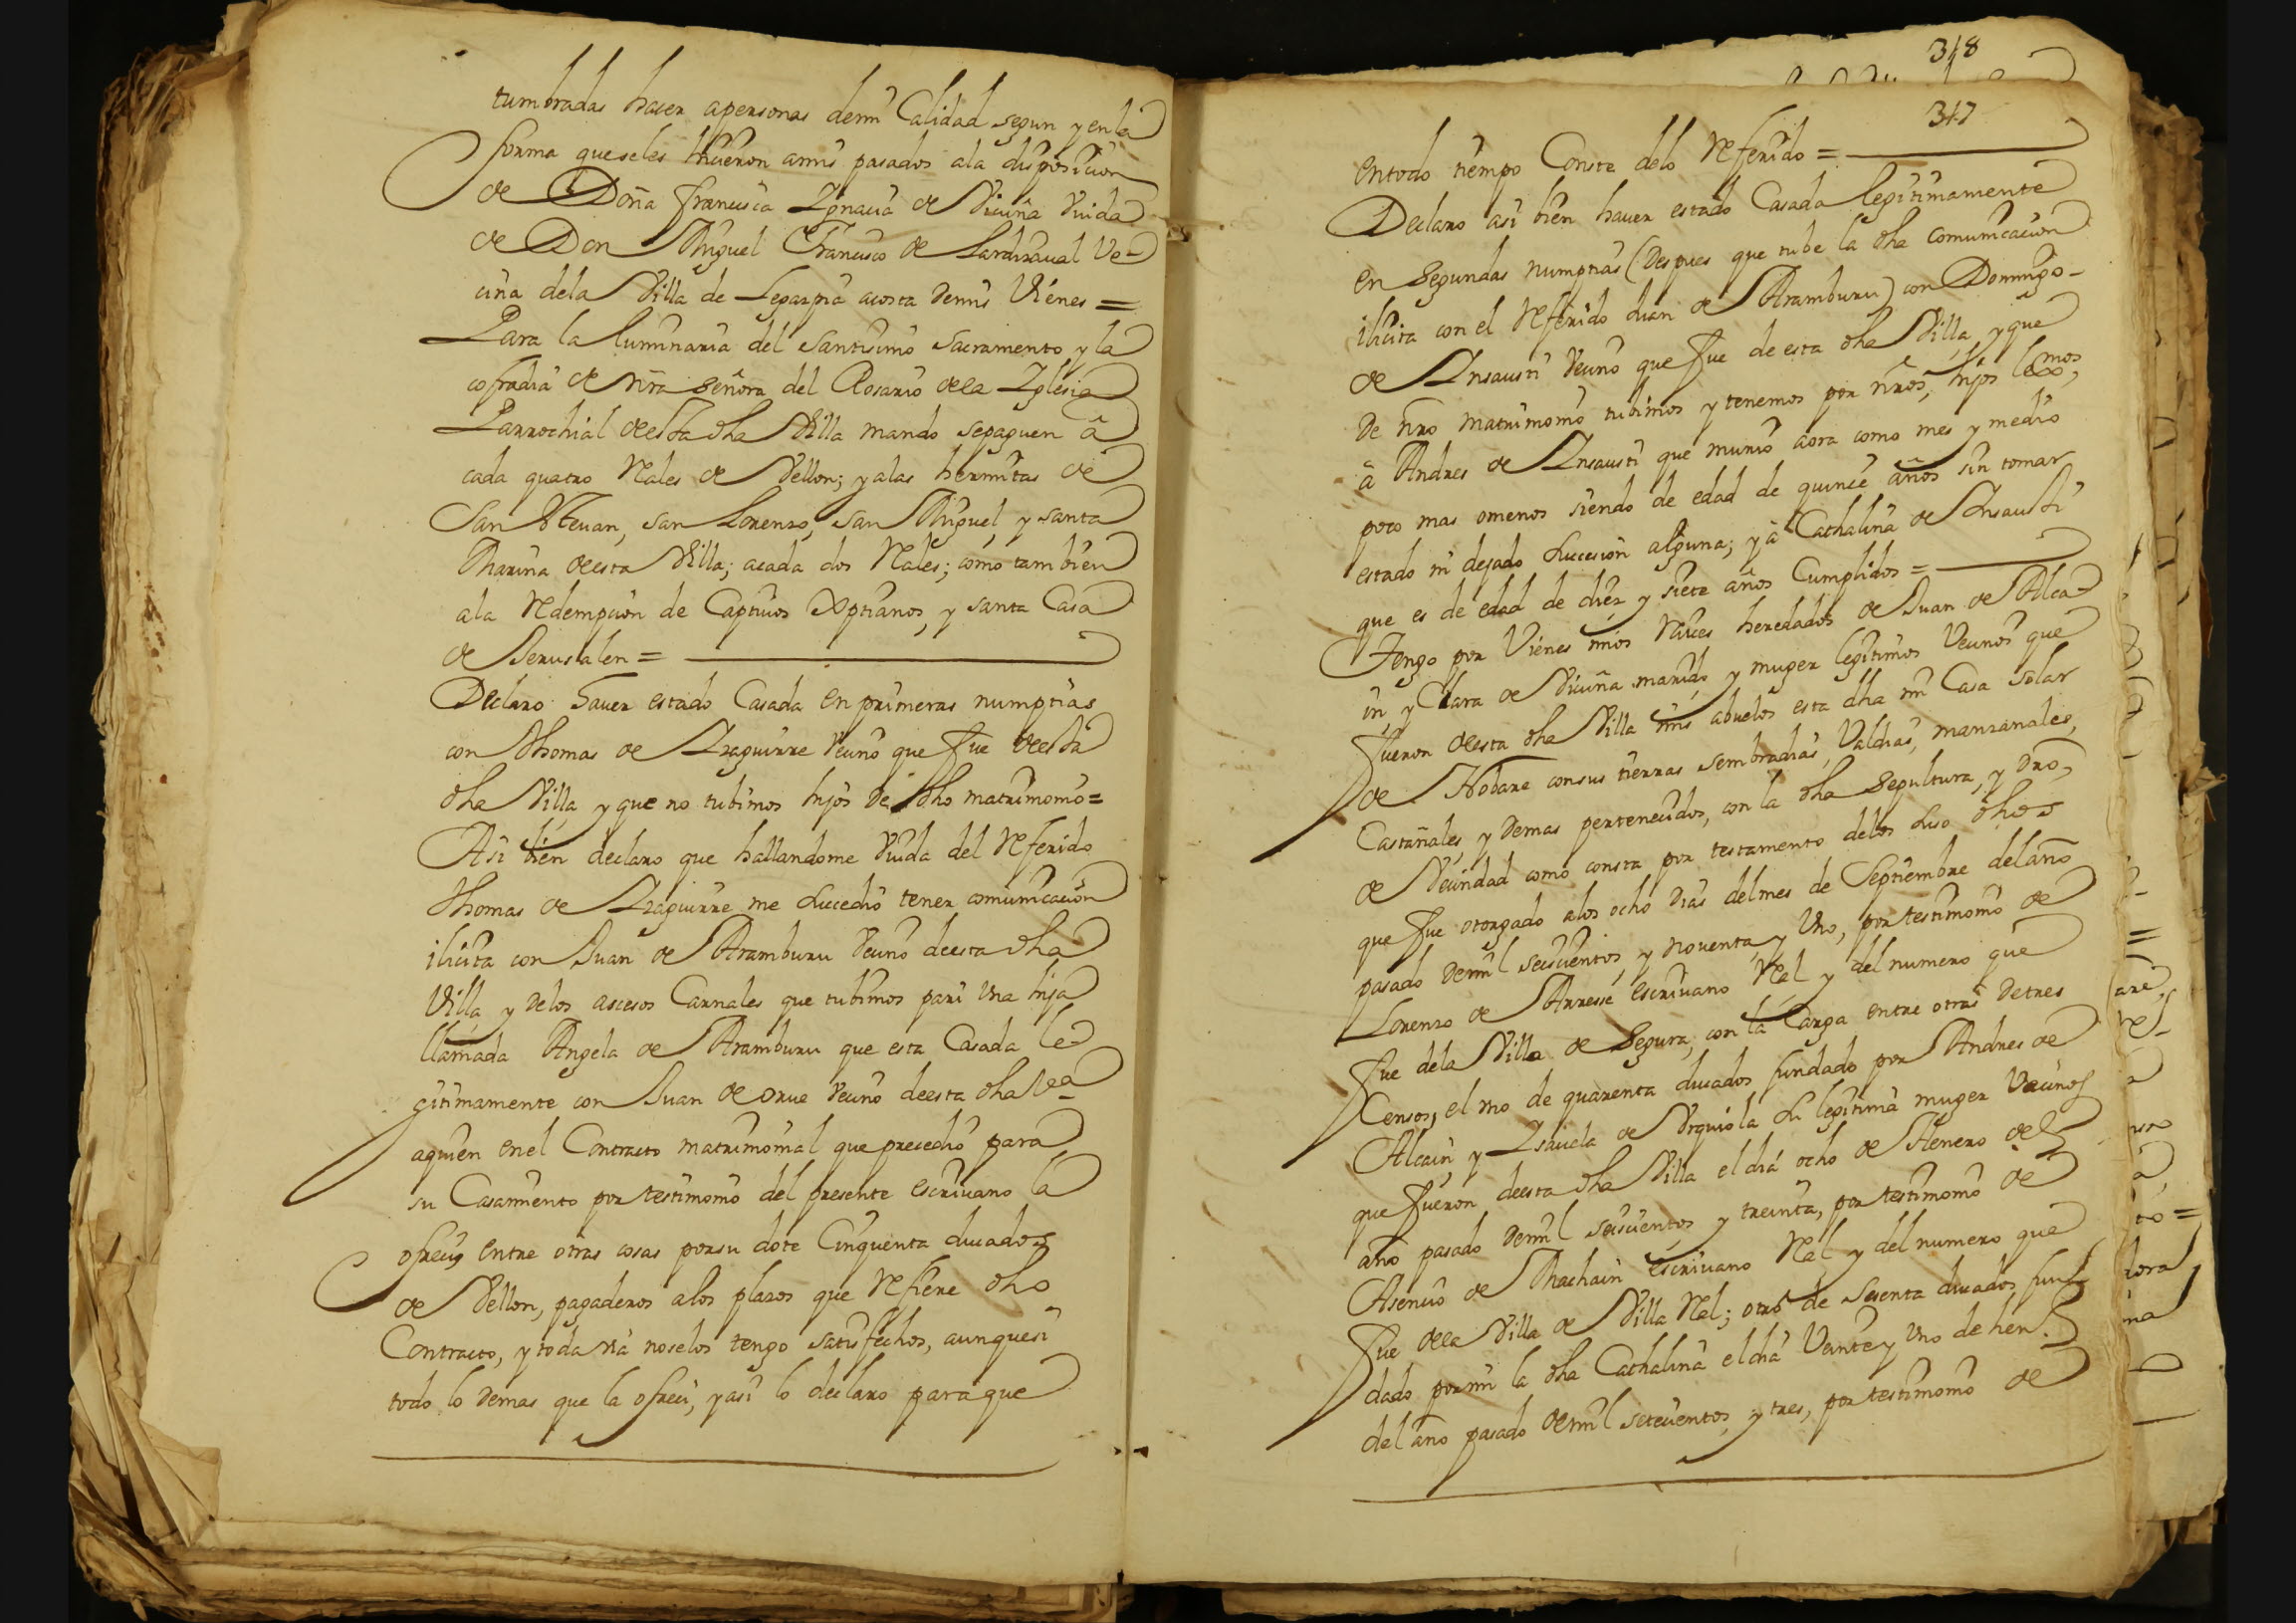 tumbradas hacer apersonas demi Calidad segun y en la
forma queseles hicieron amis pasados ala disposicion
de Doña Francisca Ignacia de Vicuña Viuda
de Don Miguel Francisco de Lardizaval Ve-
cina dela Villa de Legazpia acosta demis Vienes =
Para la luminaria del santisimo sacramento y la
cofradia de nra Señora del Rosario dela Iglesia
Parrochial deesta dha Villa mando sepaguen â
cada quatro Reales de Vellon; y alas hermitas de
San Estevan, san Lorenzo, san Miguel, y santa
Marina deesta Villa; acada dos Reales; como tambien
ala Redempcion de Captivos Xptianos, y santa Casa
de Jerusalen =
Declaro haver estado Casada en primeras numptias
con Thomas de Izaguirre Vecino que fue deesta
dha Villa, y que no tubimos hijos de dho matrimonio =
Asi bien declaro que hallandome Viuda del Referido
Thomas de Izaguirre me sucedio tener comunicacion
ilicita con Juan de Aramburu Vecino deesta dha
Villa y delos ascesos Carnales que tubimos pari Una hija
llamada Angela de Aramburu que esta Casada le-
gitimamente con Juan de Orue Vecino deesta dha Va
aquien en el Contracto matrimonial que precedio para
su Casamiento por testimonio del presente escrivano la
ofreci entre otras cosas porsu dote Cinquenta ducados
de Vellon, pagaderos alos plazos que Refiere dho
Contracto, y toda via noselos tengo satisfechos, aunquesi
todo lo demas que la ofreci, y asi lo declaro para que
318
317
entodo tiempo Conste delo Referido =
Declaro asi bien haver estado Casada legitimamente
en Segundas numptias (Despues que tube la dha comunicacion
ilicita con el Referido Juan de Aramburu) con Domingo
de Insausti Vecino que fue de esta dha Villa, y que
de nro matrimonio tubimos y tenemos por nros, hijos lexmos,
â Andres de Insausti que murio aora como mes y medio
poco mas omenos siendo de edad de quince años sin tomar
estado ni dejado succesion alguna; y â Cathalina de Insausti
que es de edad de diez y siete años Cumplidos =
Tengo por Vienes mios Raices heredados de Juan de Alca-
in y Clara de Vicuña marido y muger legitimos Vecinos que
fueron deesta dha Villa mis abuelos esta dha mi Casa solar
de Hobare consus tierras sembradias, Valdias, manzanales,
Castañales, y demas pertenecidos, con la dha Sepultura, y dro,
de Vecindad como consta por testamento delos suso dhos
que fue otorgado alos ocho dias delmes de Septiembre del año
pasado demil seiscientos, y noventa y Uno, por testimonio de
Lorenzo de Arrese escrivano Real y del numero que
fue dela Villa de Segura, con la Carga entre otras detres
Censos, el Uno de quarenta ducados fundado por Andres de
Alcain y Isavela de Urquiola su legitima muger Vecinos
que fueron deesta dha Villa el dia ocho de Henero del
año pasado demil seiscientos, y treinta, por testimonio de
Asencio de Machain escrivano Real y del numero que
fue dela Villa de Villa Real; otro de Sesenta ducados, fun-
dado pormi la dha Cathalina el dia Veinte y Uno de hen.
del año pasado demil setecientos, y tres, por testimonio de